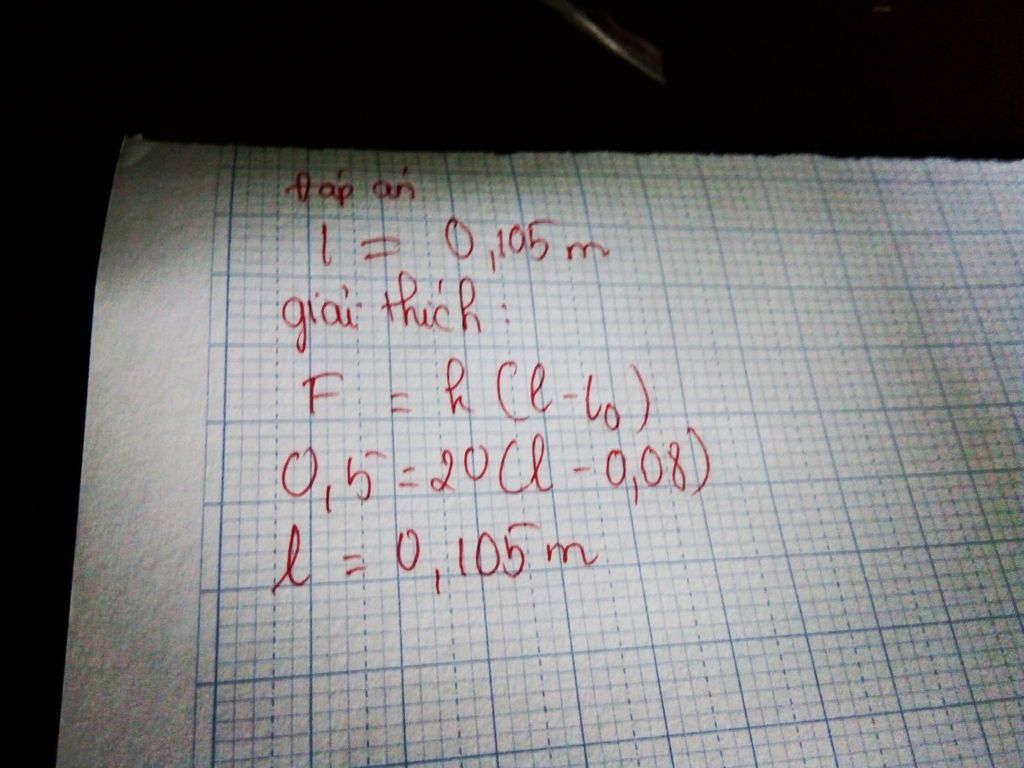 Đáp án
l = 0,105 m
giải thích:
F = k (l - l₀)
0,5 = 20 (l - 0,08)
l = 0,105 m